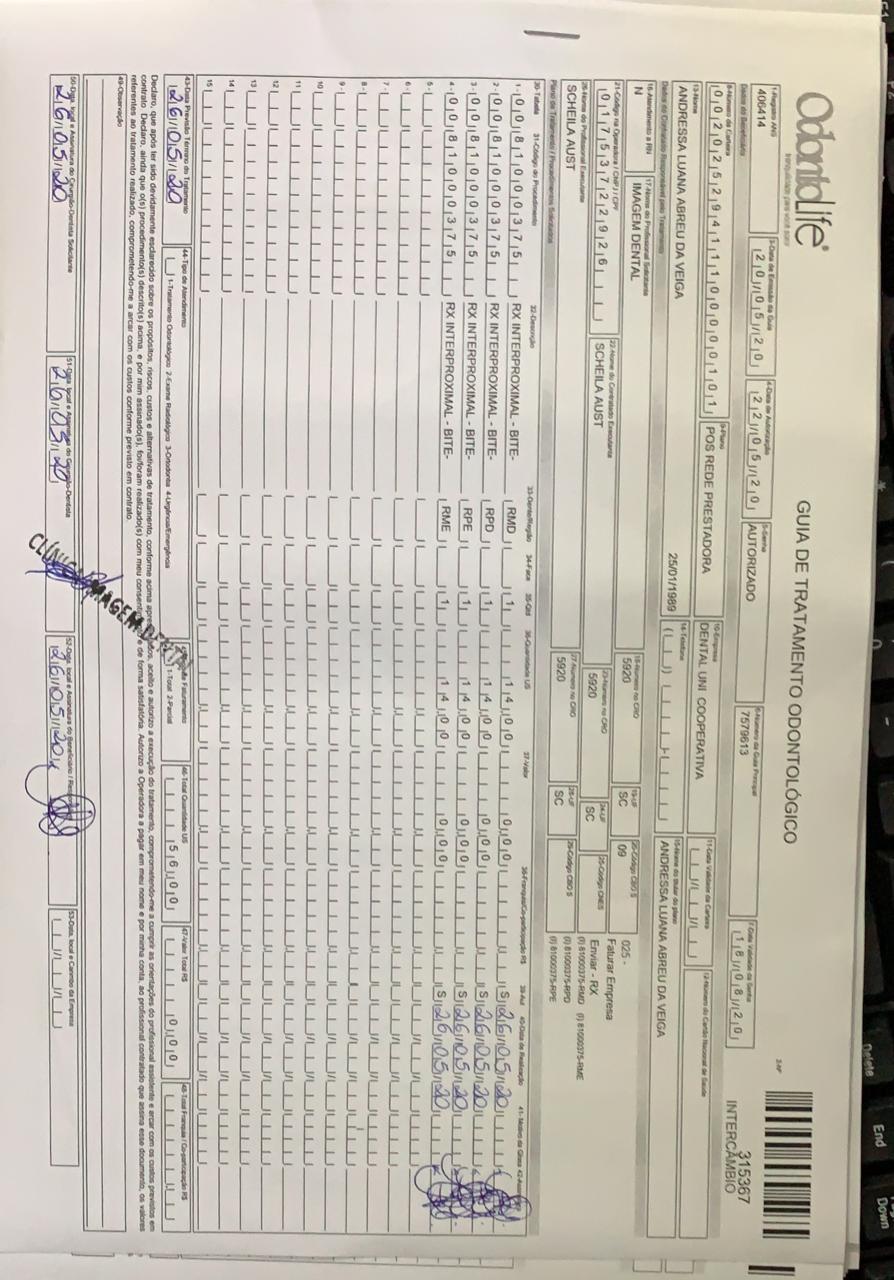 OdontoLife®
tranquilidade para você sorrir
GUIA DE TRATAMENTO ODONTOLÓGICO
2-Nº
315367
INTERCÂMBIO
1-Registro ANS
406414
3-Data de Emissão da Guia
20/05/20
4-Data de Autorização
22/05/20
5-Senha
AUTORIZADO
6-Número da Guia Principal
7579613
7-Data Validade da Senha
18/08/20
Dados do Beneficiário
8-Número da Carteira
00202529411100000101
9-Plano
POS REDE PRESTADORA
10-Empresa
DENTAL UNI COOPERATIVA
11-Data Validade da Carteira
12-Número do Cartão Nacional de Saúde
13-Nome
ANDRESSA LUANA ABREU DA VEIGA
25/01/1989
14-Telefone
15-Nome do titular do plano
ANDRESSA LUANA ABREU DA VEIGA
Dados do Contratado Responsável pelo Tratamento
16-Atendimento a RN
N
17-Nome do Profissional Solicitante
IMAGEM DENTAL
18-Número no CRO
5920
19-UF
SC
20-Código CBO S
09
025 -
Faturar Empresa
Enviar - RX
21-Código na Operadora / CNPJ / CPF
01753722926
22-Nome do Contratado Executante
SCHEILA AUST
23-Número no CRO
5920
24-UF
SC
25-Código CNES
26-Nome do Profissional Executante
SCHEILA AUST
27-Número no CRO
5920
28-UF
SC
29-Código CBO S
(I) 81000375-RMD (I) 81000375-RME
(I) 81000375-RPD
(I) 81000375-RPE
Plano de Tratamento / Procedimentos Solicitados
30-Tabela 31-Código do Procedimento 32-Descrição 33-Dente/Região 34-Face 35-Qtd 36-Quantidade US 37-Valor 38-Franquia/Co-participação R$ 39-Aut 40-Data de Realização 41-Motivo da Glosa
1- 00 81000375 RX INTERPROXIMAL - BITE- RMD 1 14,00 0,00 S 26/05/20
2- 00 81000375 RX INTERPROXIMAL - BITE- RPD 1 14,00 0,00 S 26/05/20
3- 00 81000375 RX INTERPROXIMAL - BITE- RPE 1 14,00 0,00 S 26/05/20
4- 00 81000375 RX INTERPROXIMAL - BITE- RME 1 14,00 0,00 S 26/05/20
5-
6-
7-
8-
9-
10
11
12
13
14
15
43-Data Previsão Término do Tratamento
26/05/20
44-Tipo de Atendimento
1-Tratamento Odontológico 2-Exame Radiológico 3-Ortodontia 4-Urgência/Emergência
Faturamento
1-Total 2-Parcial
46-Total Quantidade US
56,00
47-Valor Total R$
0,00
48-Total Franquia / Co-participação R$
Declaro, que após ter sido devidamente esclarecido sobre os propósitos, riscos, custos e alternativas de tratamento, conforme acima, aceito e autorizo a execução do tratamento, comprometendo-me a cumprir as orientações do profissional assistente e arcar com os custos previstos em
contrato. Declaro, ainda que o(s) procedimento(s) descrito(s) acima, e por mim assinado(s), foi/foram realizado(s) com meu e de forma satisfatória. Autorizo a Operadora a pagar em meu nome e por minha conta, ao profissional contratado que assina esse documento, os valores
referentes ao tratamento realizado, comprometendo-me a arcar com os custos conforme previsto em contrato.
49-Observação
CLÍNICA IMAGEM DENTAL
50-Data, local e Assinatura do Cirurgião-Dentista Solicitante
26/05/20
51-Data, local e Assinatura do Cirurgião-Dentista
26/05/20
52-Data, local e Assinatura do Beneficiário
26/05/20
53-Data, local e Carimbo da Empresa
Delete
End
Down